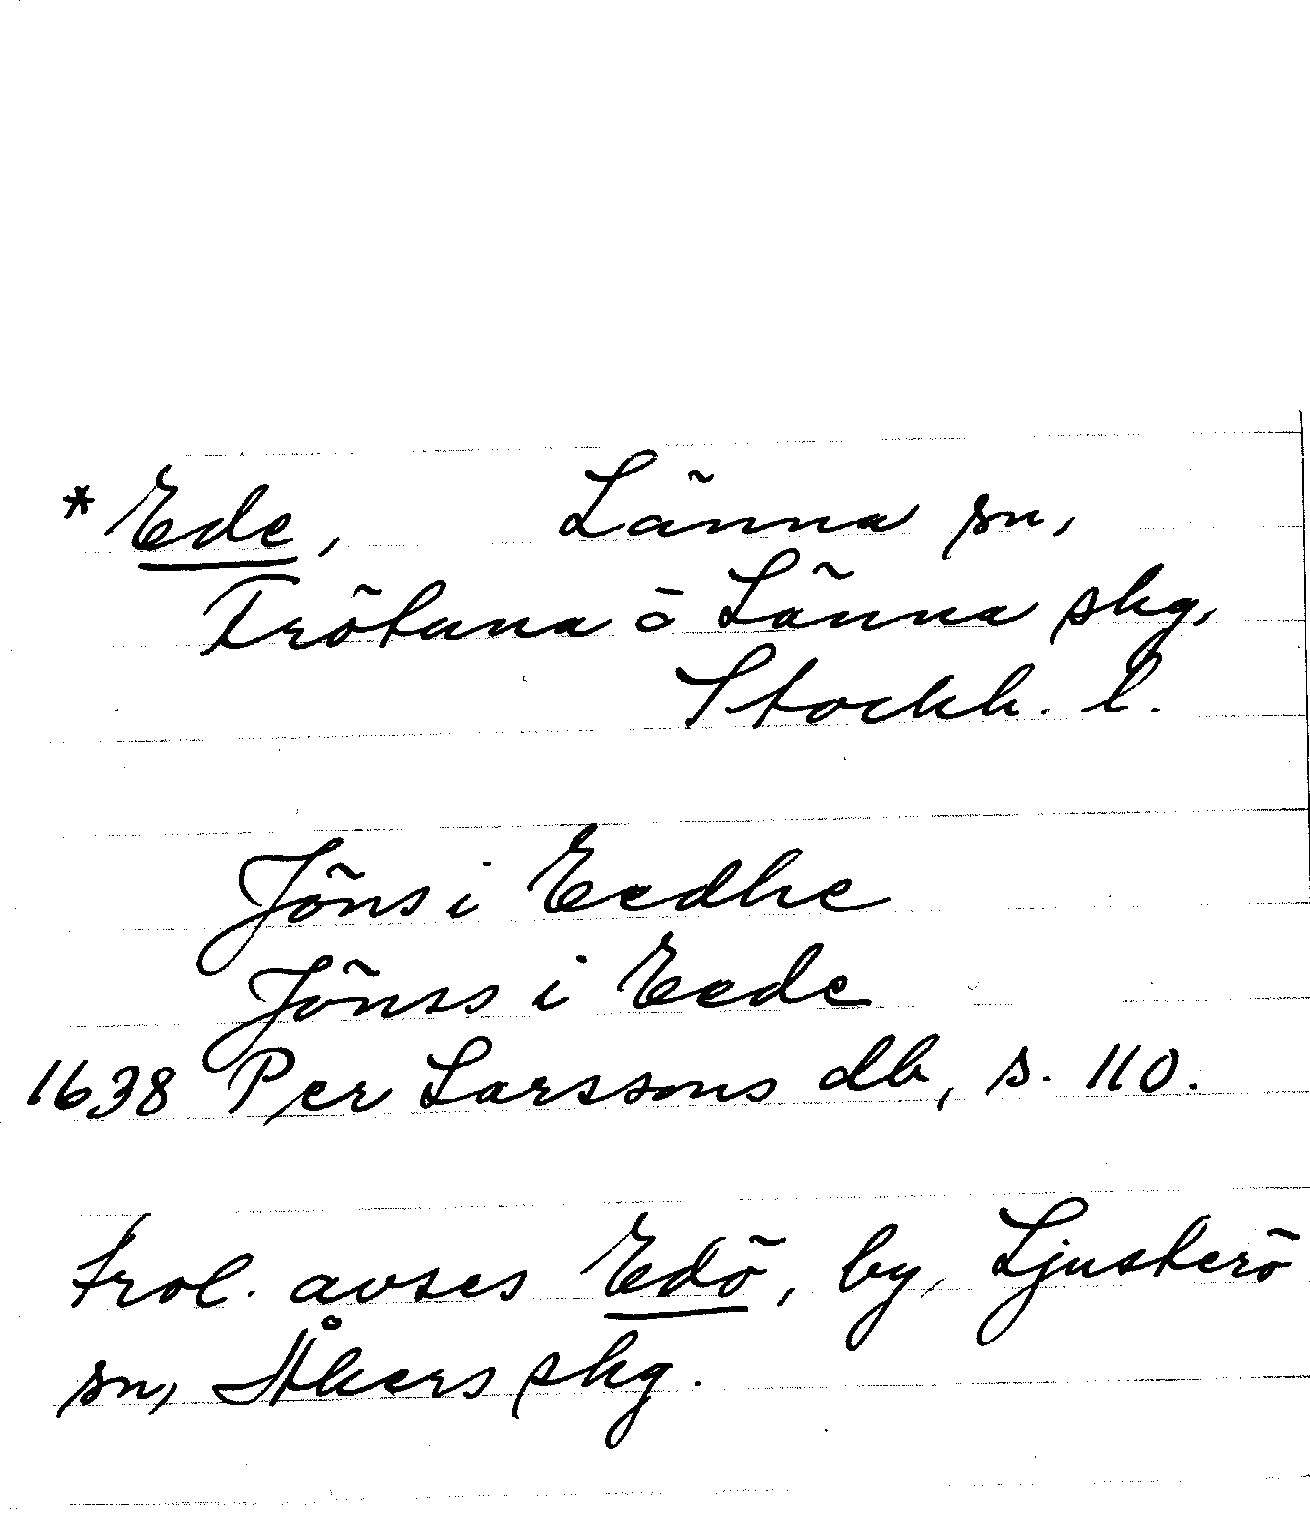 *Ede, Länna sn,
Frötuna o Länna skg,
Stockh. l.
Jöns i Eedhe
Jönss i Eede
1638 Per Larssons db, s. 110.
trol. avses Edö, by, Ljusterö
sn, Åkers skg.